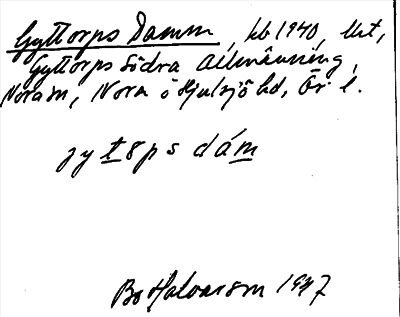 Gyttorps Damm, hb 1940, Ust,
Gyttorps Södra Allmänning,
Noram, Nora o Hjulsjö hd, Ör. l.
jyt8ps dám
Bo Halvarson 1947